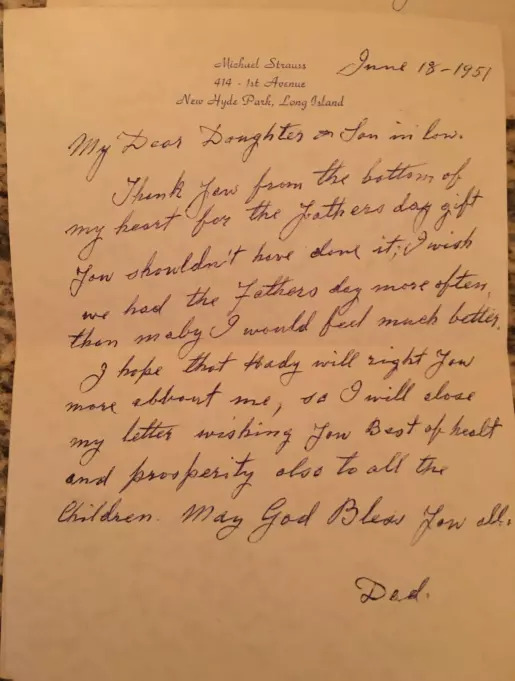 Michael Strauss
414 - 1st Avenue
New Hyde Park, Long Island
June 18-1951
My Dear Doughter & Son in low.
Thenk You from the bottom of
my heart for the Fathers day gift
You shouldn't have done it; I wish
we had the Fathers day more often,
than maby I would feel much better.
I hope that Hady will right You
more abbout me, so I will close
my letter wishing You Best of healt
and prosperity also to all the
Children. May God Bless You all.
Dad.